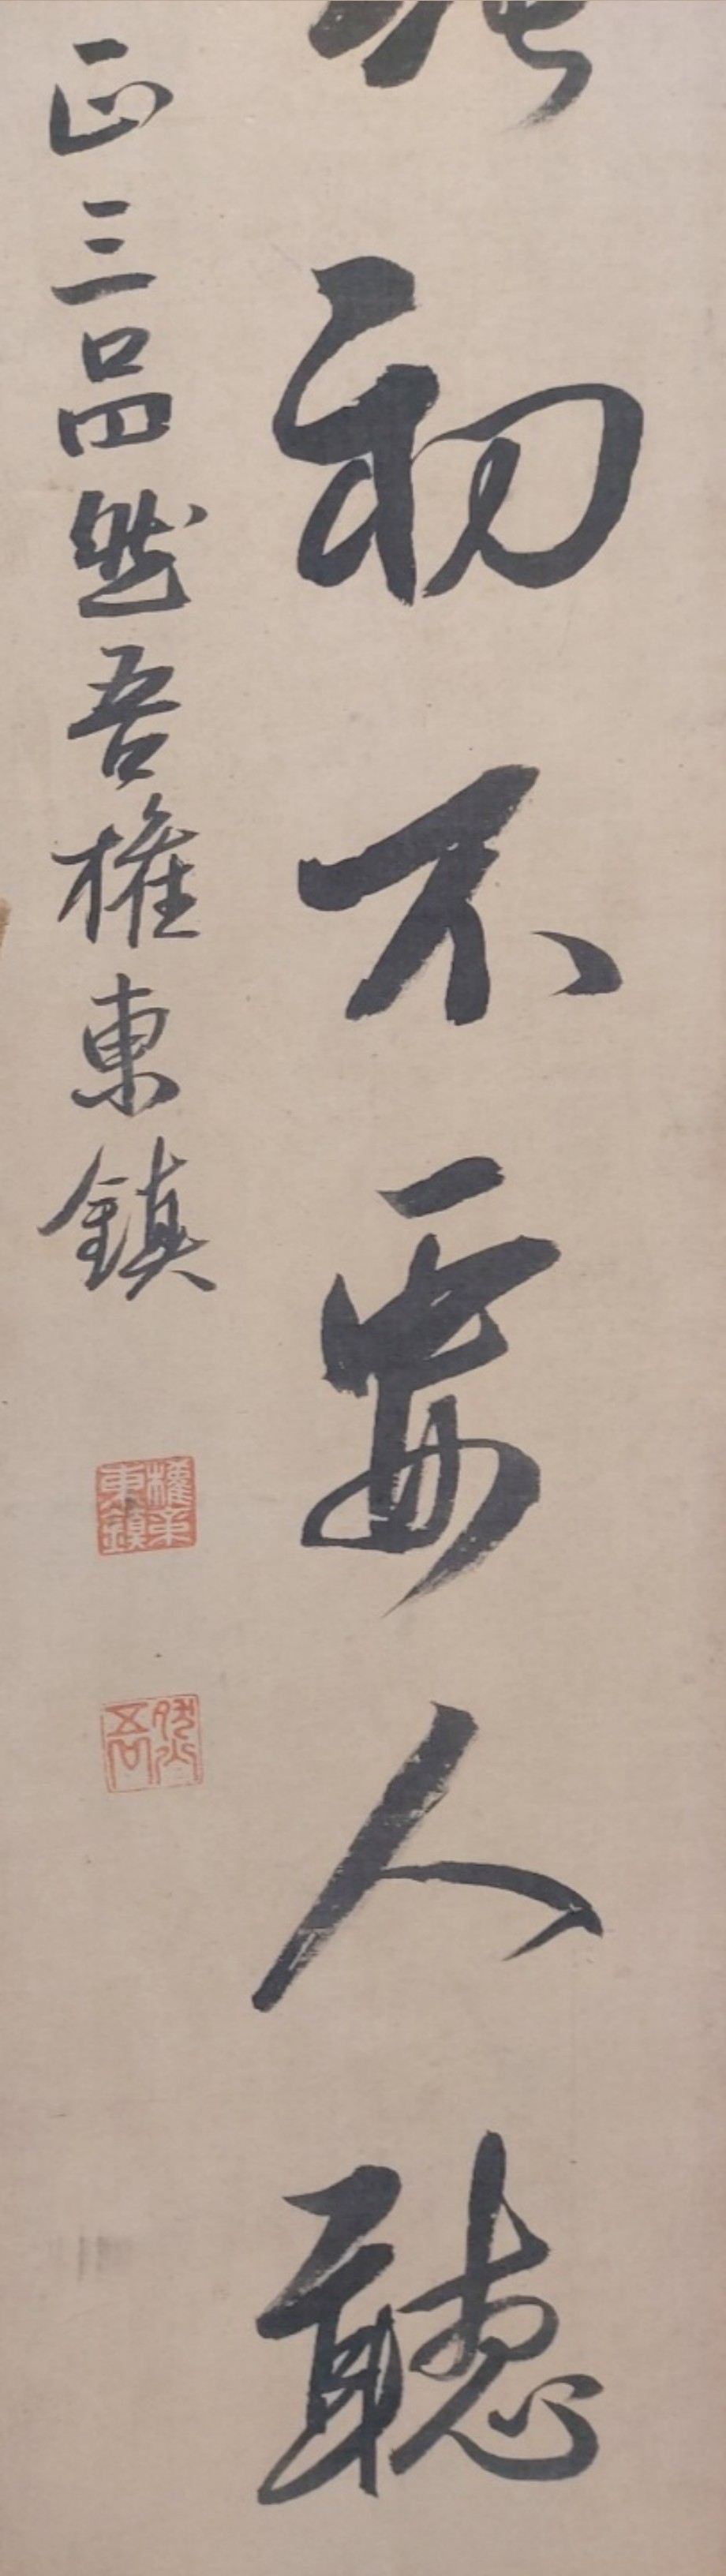 初不要人聽
正三品然吾權東鎮
權
東鎮
然吾